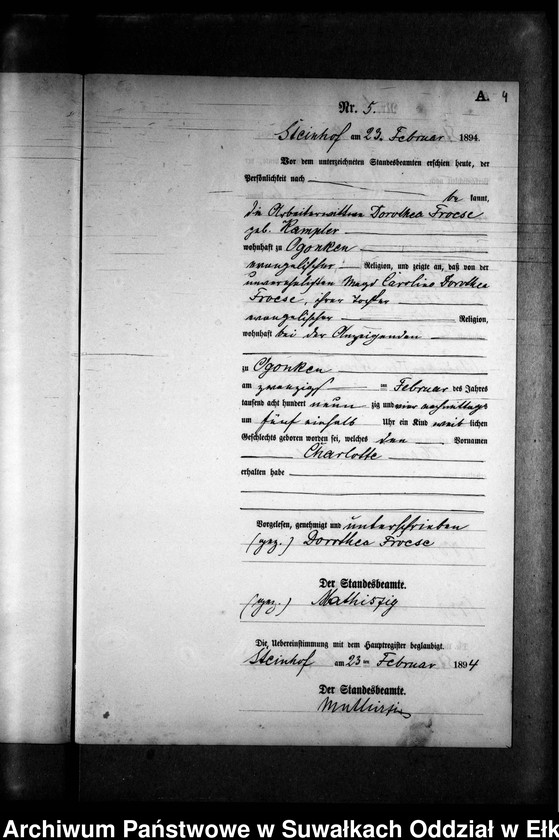 A. 4
Nr. 5.
Steinhof am 23. Februar 1894
Vor dem unterzeichneten Standesbeamten erschien heute, der
Persönlichkeit nach
be kannt,
die Arbeiterwittwe Dorothea Froese
geb. Kampler
wohnhaft zu Ogonken
evangelischer Religion, und zeigte an, daß von der
unverehelichten Magd Caroline Dorothea
Froese, ihrer Tochter
evangelischer Religion,
wohnhaft bei der Anzeigenden
zu Ogonken
am zwanzigst en Februar des Jahres
tausend acht hundert neun zig und vier nachmittags
um fünf einhalb Uhr ein Kind weib lichen
Geschlechts geboren worden sei, welches den Vornamen
Charlotte
erhalten habe
Vorgelesen, genehmigt und unterschrieben
(gez.) Dorothea Froese
Der Standesbeamte.
(gez.) Mathiszig
Die Uebereinstimmung mit dem Hauptregister beglaubigt.
Steinhof am 23 ten Februar 1894
Der Standesbeamte.
Mathiszig
Archiwum Państwowe w Suwałkach Oddział w Ełk